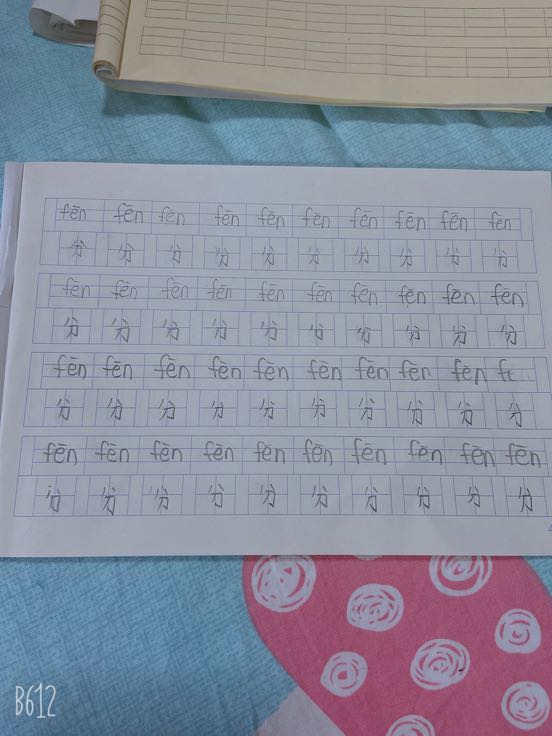 fēn fēn fēn fēn fēn fēn fēn fēn fēn fēn
分 分 分 分 分 分 分 分 分 分
fēn fēn fēn fēn fēn fēn fēn fēn fēn fēn
分 分 分 分 分 分 分 分 分 分
fēn fēn fēn fēn fēn fēn fēn fēn fēn
分 分 分 分 分 分 分 分 分 分
fēn fēn fēn fēn fēn fēn fēn fēn fēn fēn
分 分 分 分 分 分 分 分 分 分
B612